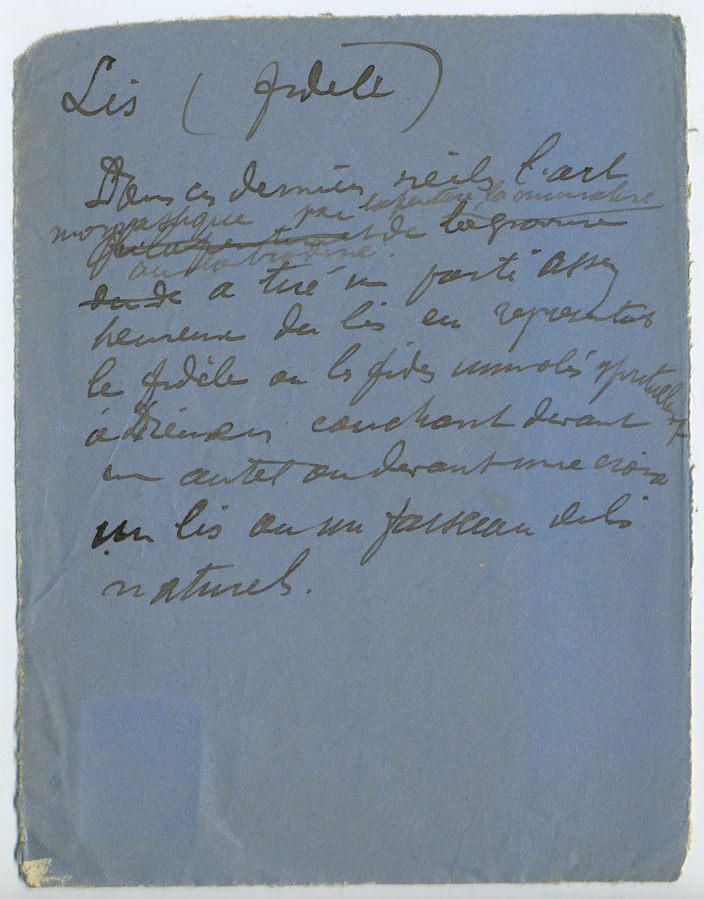 Lis (fidèle)
Dans ces derniers siècls, l'art
monastique par la peinture, la miniature
et de la gravure
ou la broderie.
du de a tiré un parti assez
heureux du lis en représentant
le fidèle ou les fidèles immolés spirituellement
à Dieu en couchant devant
un autel ou devant une croix
un lis ou un faisceau de lis
naturels.